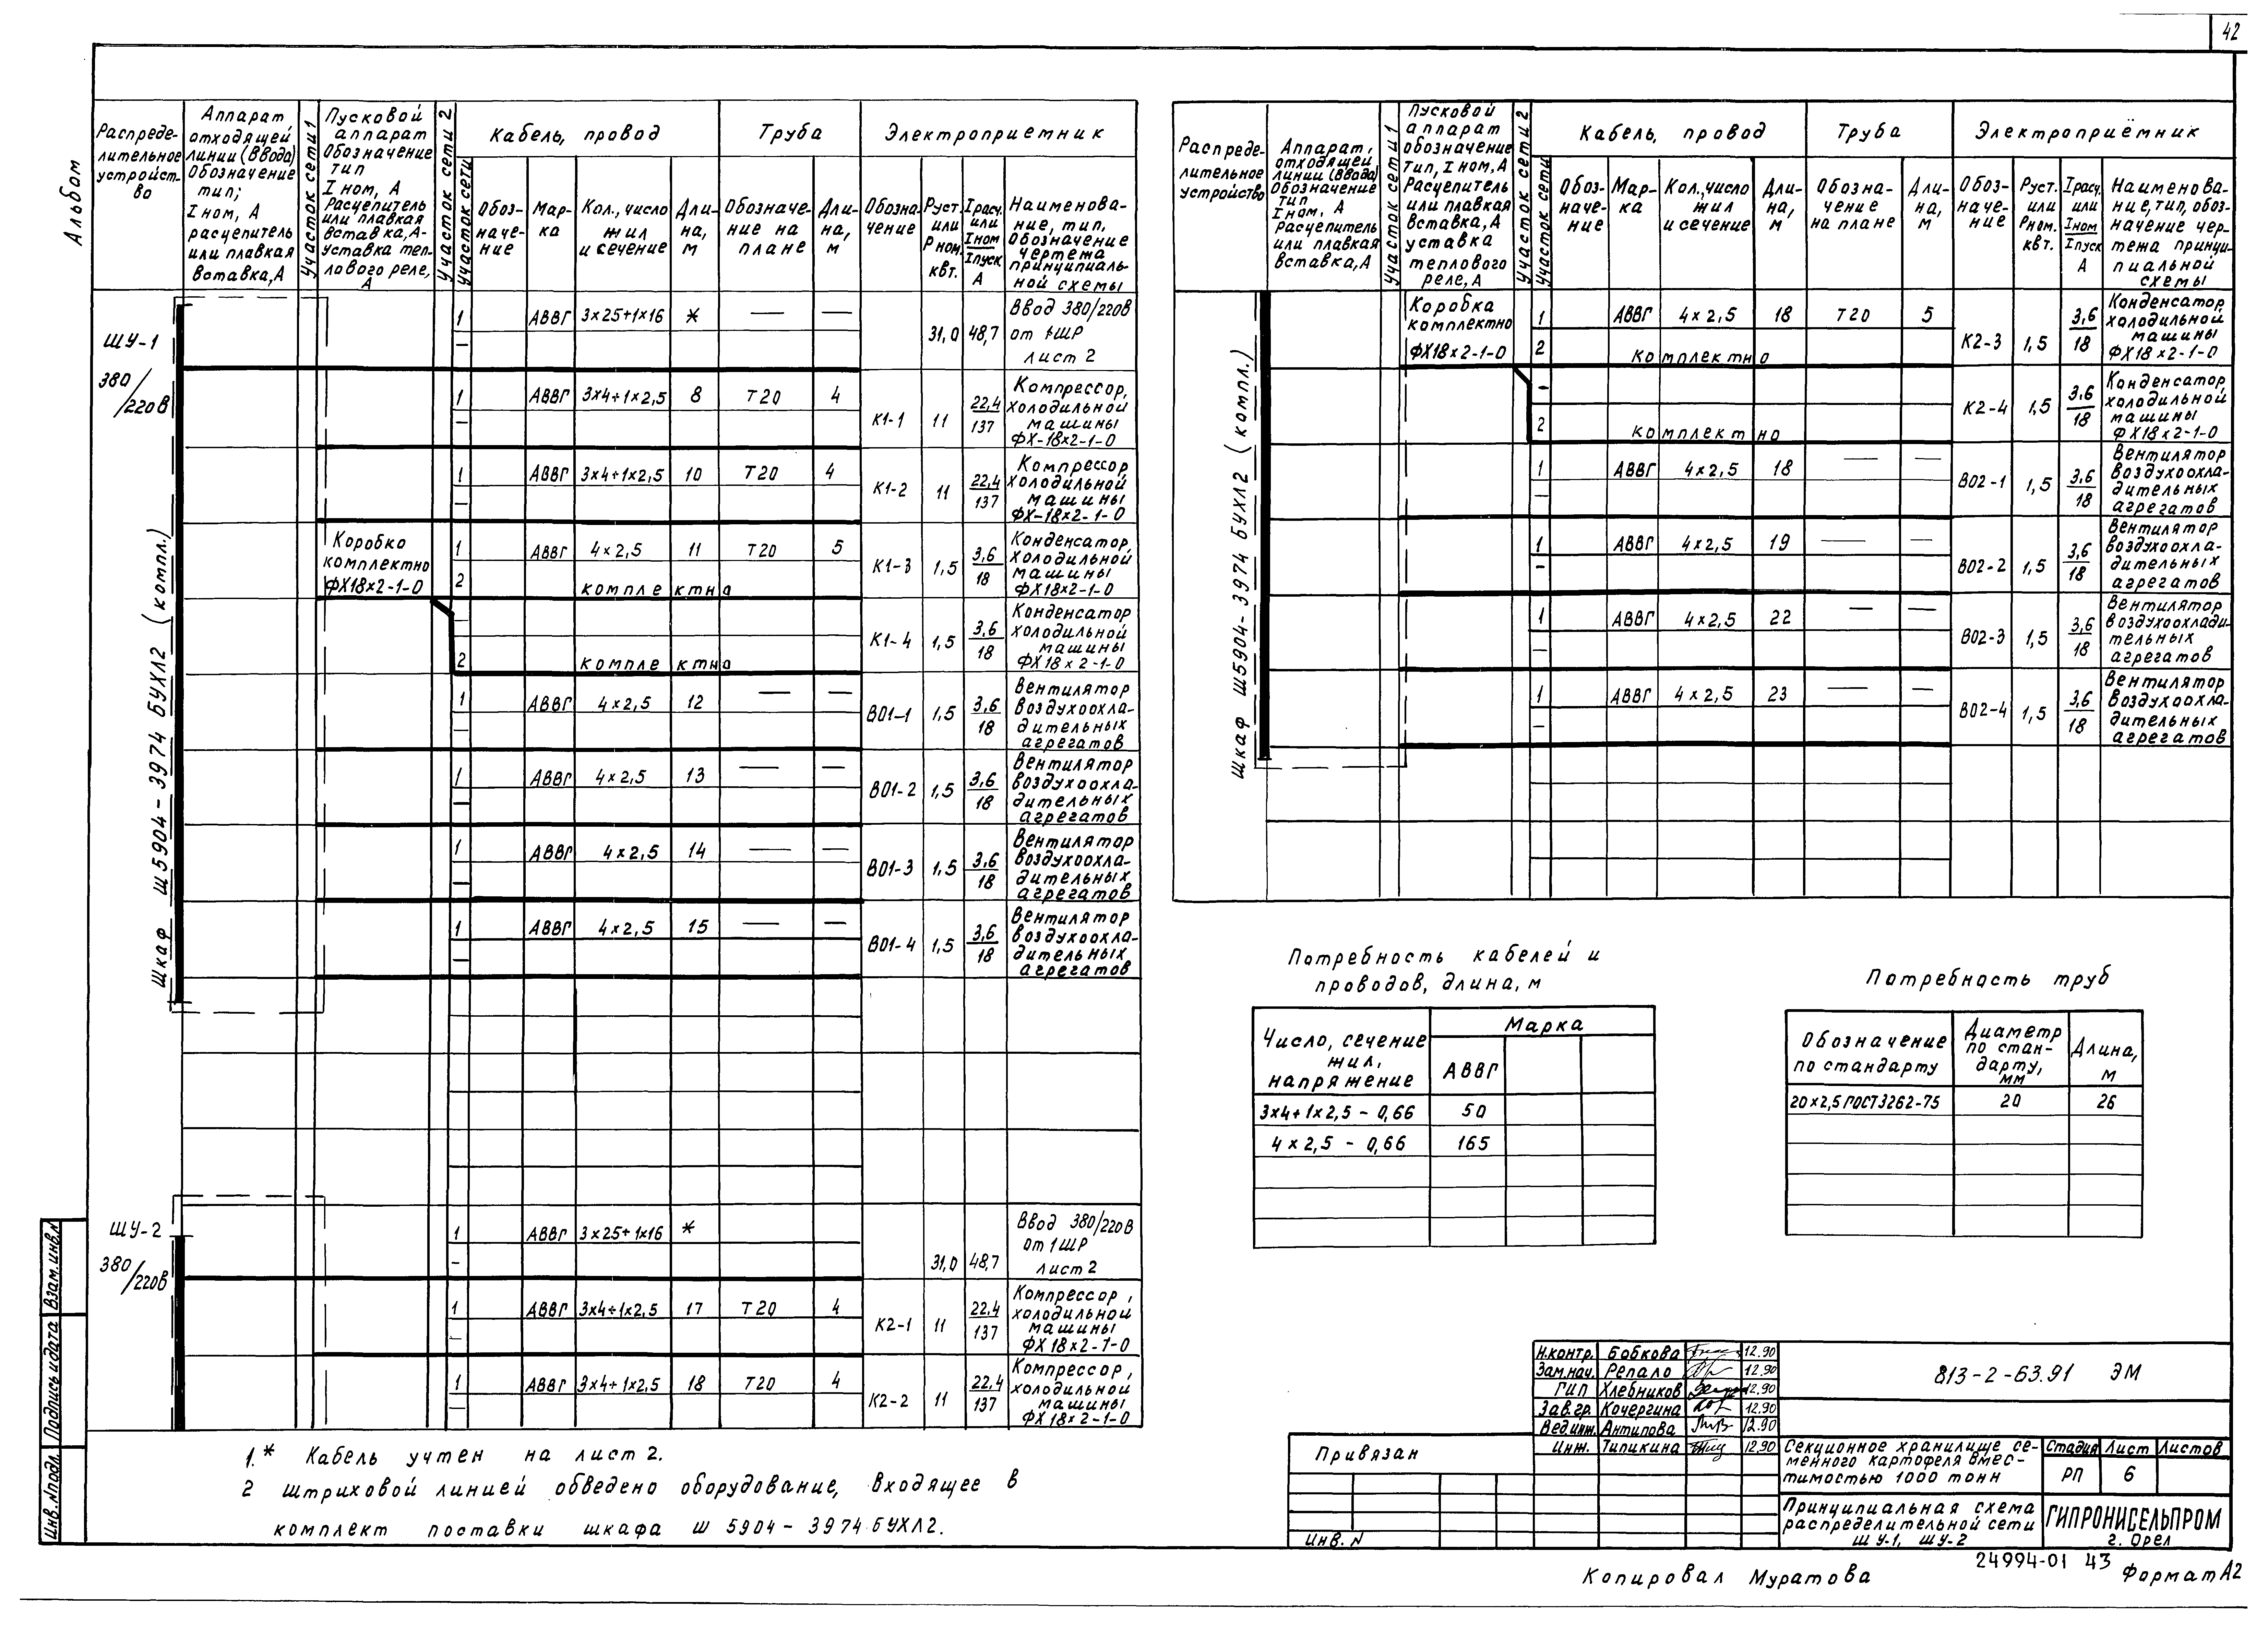 42
Альбом
Распреде-
лительное
устройст-
во
Аппарат
отходящей
линии (ввода)
Обозначение
тип;
Iном, А
расцепитель
или плавкая
вставка, А
Участок сети 1
Пусковой
аппарат
Обозначение
тип
Iном, А
Расцепитель
или плавкая
вставка, А-
уставка теп-
лового реле,
А
Участок сети 2
Участок сети
Кабель, провод
Обоз-
наче-
ние
Мар-
ка
Кол., число
жил
и сечение
Дли-
на,
м
Труба
Обозначе-
ние на
плане
Дли-
на,
м
Электроприемник
Обозна-
чение
Руст.
или
Рном.
квт.
Iрасч.
или
Iном
Iпуск
А
Наименова-
ние, тип,
обозначение
чертежа
принципиаль-
ной схемы
ШУ-1
380/220В
Шкаф Ш5904-3974 БУХЛ2 (компл.)
1 АВВГ 3х25+1х16 * — — 31,0 48,7 Ввод 380/220В
от 1ШР
лист 2
1 АВВГ 3х4+1х2,5 8 Т20 4 К1-1 11 22,4/137 Компрессор,
холодильной
машины
ФХ-18х2-1-0
1 АВВГ 3х4+1х2,5 10 Т20 4 К1-2 11 22,4/137 Компрессор,
холодильной
машины
ФХ-18х2-1-0
Коробка
комплектно
ФХ18х2-1-0
1 АВВГ 4х2,5 11 Т20 5 К1-3 1,5 3,6/18 Конденсатор,
холодильной
машины
ФХ18х2-1-0
2 комплектно
К1-4 1,5 3,6/18 Конденсатор
холодильной
машины
ФХ18х2-1-0
2 комплектно
1 АВВГ 4х2,5 12 — — В01-1 1,5 3,6/18 Вентилятор
воздухоохла-
дительных
агрегатов
1 АВВГ 4х2,5 13 — — В01-2 1,5 3,6/18 Вентилятор
воздухоохла-
дительных
агрегатов
1 АВВГ 4х2,5 14 — — В01-3 1,5 3,6/18 Вентилятор
воздухоохла-
дительных
агрегатов
1 АВВГ 4х2,5 15 — — В01-4 1,5 3,6/18 Вентилятор
воздухоохла-
дительных
агрегатов
ШУ-2
380/220В
1 АВВГ 3х25+1х16 * 31,0 48,7 Ввод 380/220В
от 1ШР
лист 2
1 АВВГ 3х4+1х2,5 17 Т20 4 К2-1 11 22,4/137 Компрессор,
холодильной
машины
ФХ18х2-1-0
1 АВВГ 3х4+1х2,5 18 Т20 4 К2-2 11 22,4/137 Компрессор,
холодильной
машины
ФХ18х2-1-0
1.* Кабель учтен на лист 2.
2 Штриховой линией обведено оборудование, входящее в
комплект поставки шкафа Ш5904-3974 БУХЛ2.
Распреде-
лительное
устройство
Аппарат,
отходящей
линии (ввода)
Обозначение
тип
Iном, А
Расцепитель
или плавкая
вставка, А
Участок сети 1
Пусковой
аппарат
обозначение
тип, Iном, А
Расцепитель
или плавкая
вставка, А
уставка
теплового
реле, А
Участок сети 2
Участок сети
Кабель, провод
Обоз-
наче-
ние
Мар-
ка
Кол., число
жил
и сечение
Дли-
на,
м
Труба
Обозна-
чение
на плане
Дли-
на,
м
Электроприёмник
Обоз-
наче-
ние
Руст.
или
Рном.
квт.
Iрасч.
или
Iном
Iпуск
А
Наименова-
ние, тип, обоз-
начение чер-
тежа принци-
пиальной
схемы
Шкаф Ш5904-3974 БУХЛ2 (компл.)
Коробка
комплектно
ФХ18х2-1-0
1 АВВГ 4х2,5 18 Т20 5 К2-3 1,5 3,6/18 Конденсатор,
холодильной
машины
ФХ18х2-1-0
2 комплектно
К2-4 1,5 3,6/18 Конденсатор,
холодильной
машины
ФХ18х2-1-0
2 комплектно
1 АВВГ 4х2,5 18 — — В02-1 1,5 3,6/18 Вентилятор
воздухоохла-
дительных
агрегатов
1 АВВГ 4х2,5 19 — — В02-2 1,5 3,6/18 Вентилятор
воздухоохла-
дительных
агрегатов
1 АВВГ 4х2,5 22 — — В02-3 1,5 3,6/18 Вентилятор
воздухоохлади-
тельных
агрегатов
1 АВВГ 4х2,5 23 — — В02-4 1,5 3,6/18 Вентилятор
воздухоохла-
дительных
агрегатов
Потребность кабелей и
проводов, длина, м
Число, сечение
жил,
напряжение
Марка
АВВГ
3х4+1х2,5 - 0,66 50
4х2,5 - 0,66 165
Потребность труб
Обозначение
по стандарту
Диаметр
по стан-
дарту,
мм
Длина,
м
20х2,5 ГОСТ3262-75 20 26
Н.контр. Бобкова 12.90
Зам.нач. Репало 12.90
ГИП Хлебников 12.90
Зав.гр. Кочергина 12.90
Вед.инж. Антипова 12.90
Инж. Типикина 12.90
813-2-63.91 ЭМ
Секционное хранилище се-
менного картофеля вмес-
тимостью 1000 тонн
Стадия Лист Листов
РП 6
Принципиальная схема
распределительной сети
ШУ-1, ШУ-2
ГИПРОНИСЕЛЬПРОМ
г. Орел
Привязан
Инв. N
Инв.Nподл. Подпись и дата Взам.инв.N
24994-01 43
Копировал Муратова
Формат А2